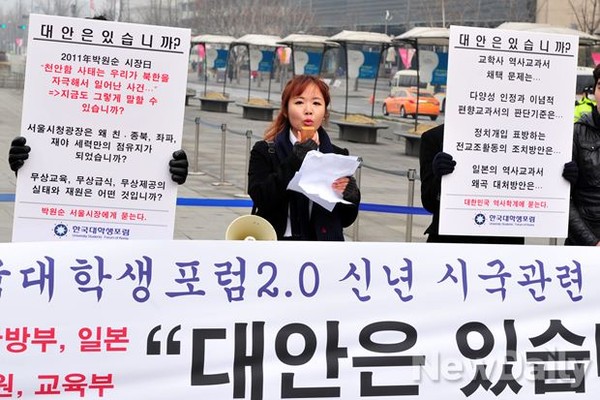 대안은 있습니까?
2011年박원순 시장日
"천안함 사태는 우리가 북한을
자극해서 일어난 사건..."
=>지금도 그렇게 말할 수
있습니까?
서울시청광장은 왜 친·종북, 좌파,
재야 세력만의 점유지가
되었습니까?
무상교육, 무상급식, 무상제공의
실태와 재원은 어떤 것입니까?
박원순 서울시장에게 묻는다.
한국대학생포럼
대안은 있습니까?
교학사 역사교과서
채택 문제는...
다양성 인정과 이념적
편향교과서의 판단기준은...
정치개입 표방하는
전교조활동의 조치방안은...
일본의 역사교과서
왜곡 대처방안은...
대한민국 역사학계에 묻는다.
한국대학생포럼
대학생포럼2.0 신년 시국관련
방부, 일본
원, 교육부
"대안은 있습니
NewDaily